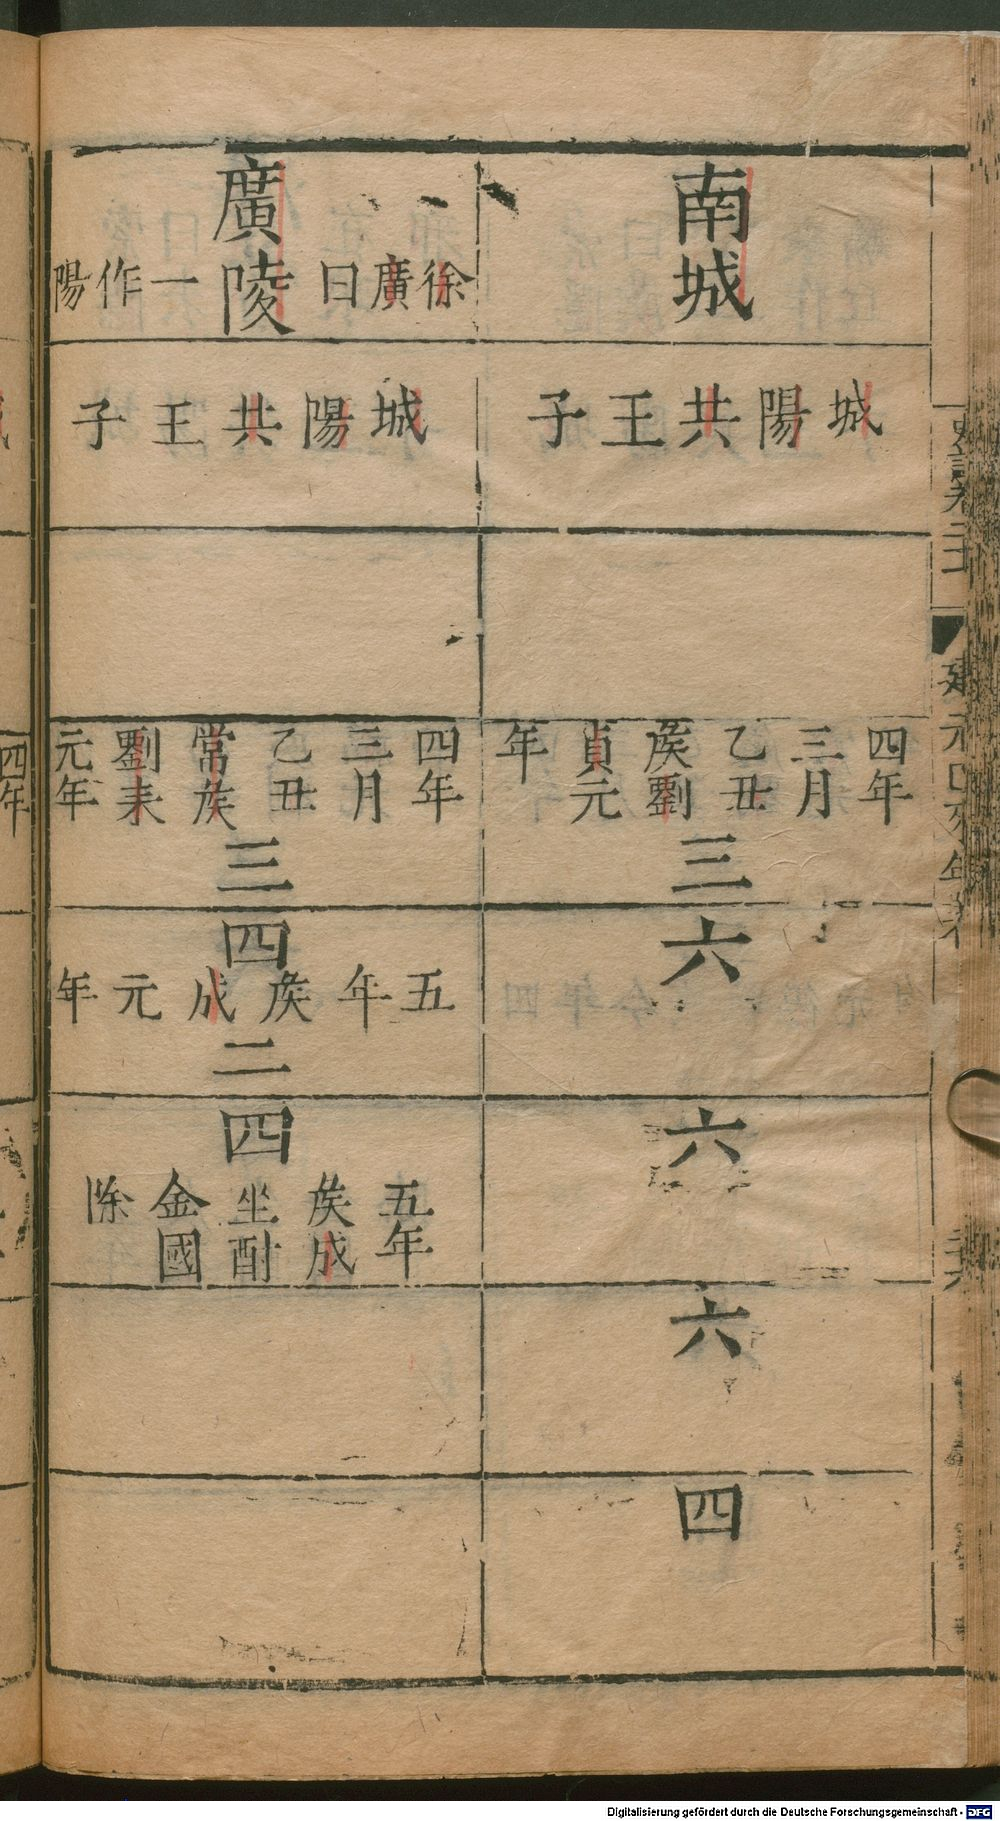 南城
城陽共王子
四年三月乙丑侯劉貞元年
三
六
六
六
四
廣陵
徐廣曰一作陽
城陽共王子
四年三月乙丑常侯劉表元年
三
四
五年侯成元年
二
四
五年侯成坐酎金國除
四年
Digitalisierung gefördert durch die Deutsche Forschungsgemeinschaft - DFG